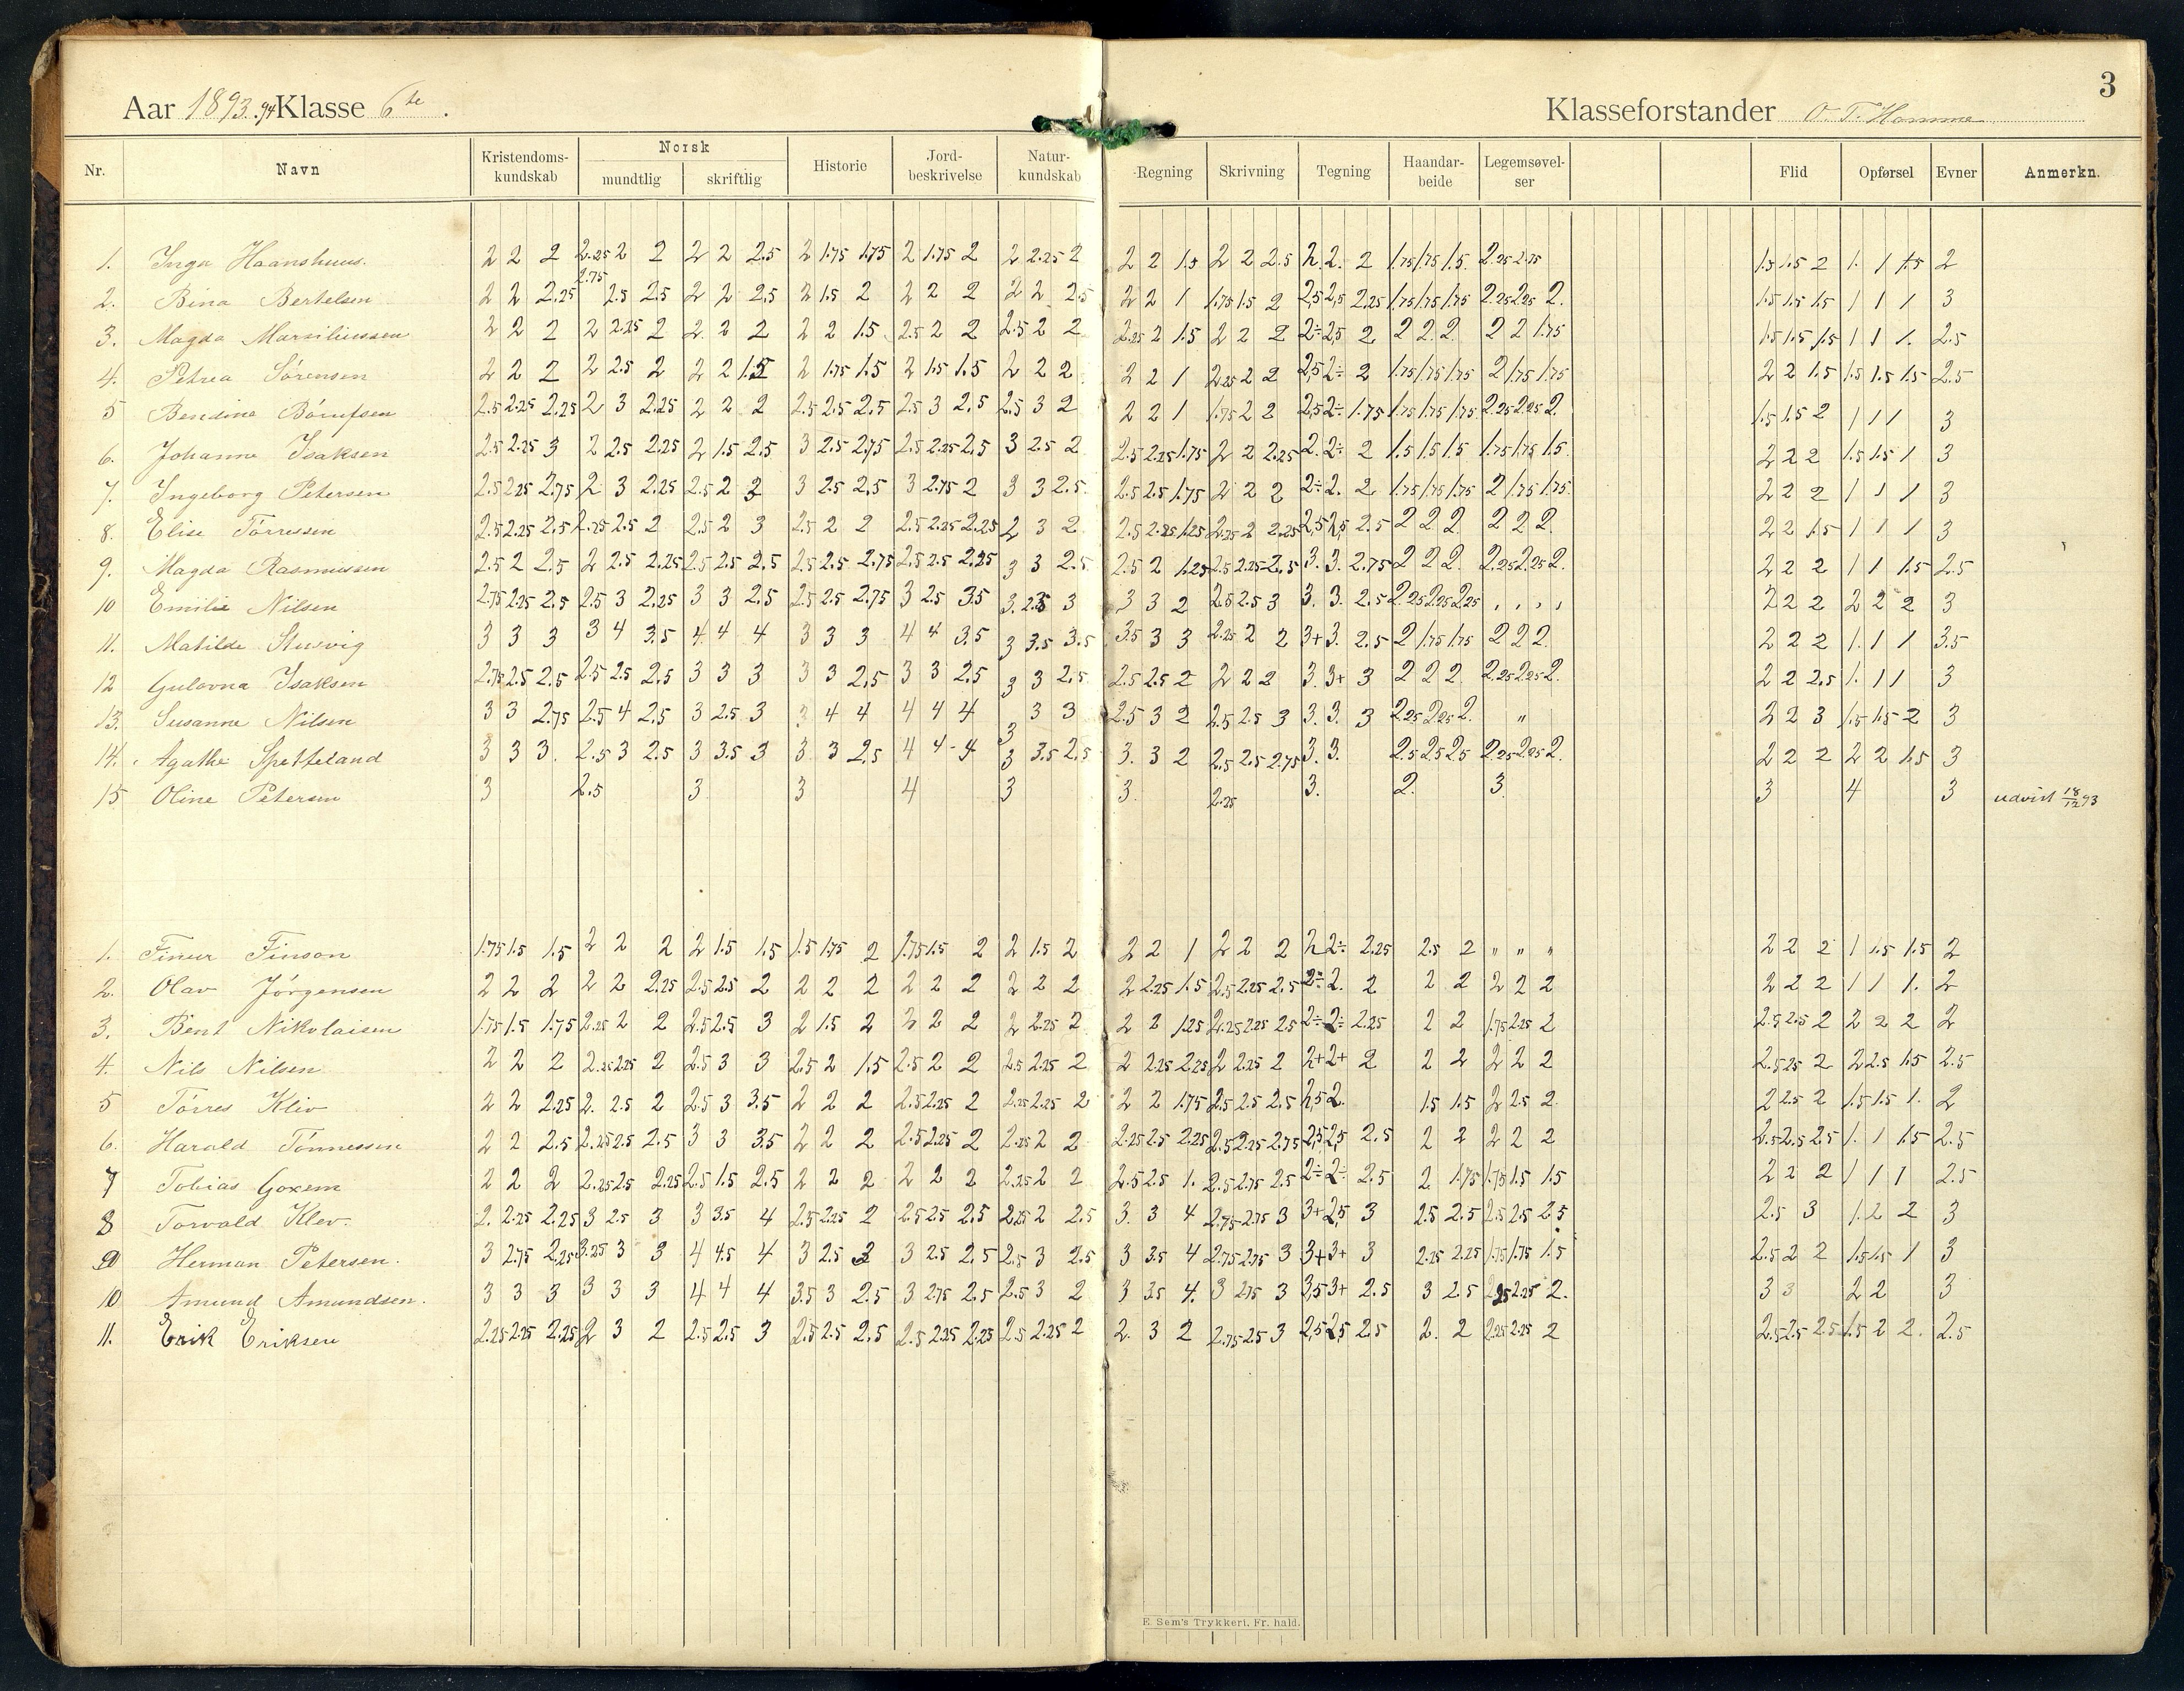 3
Aar 1893.94 Klasse 6te.
Klasseforstander O. T. Homme
Nr. Navn Kristendoms-kundskab Norsk mundtlig skriftlig Historie Jord-beskrivelse Natur-kundskab Regning Skrivning Tegning Haandar-beide Legemsøvel-ser Flid Opførsel Evner Anmerkn.
1. Inga Haanshuus. 2 2 2 2.25 2 2 2 2 2.5 2 1.75 1.75 2 1.75 2 2 2.25 2 2 2 1.5 2 2 2.5 2. 2. 2 1.75 1.75 1.5 2.25 2.75 1.5 1.5 2 1. 1 1.5 2
2. Bina Bertelsen 2 2 2.25 2.75 2.5 2.5 2 2 2.5 2 1.5 2 2 2 2 2 2 2.5 2 2 1 1.75 1.5 2 2,5 2,5 2.25 1.75 1.75 1.75 2.25 2.25 2. 1.5 1.5 1.5 1 1 1 3
3. Magda Marsiliussen 2 2 2 2 2.25 2 2 2 2 2 2 1.5 2.5 2 2 2.5 2 2 2.25 2 1.5 2 2 2 2÷ 2,5 2 2 2 2 2 2 1.75 1.5 1.5 1.5 1 1 1. 2.5
4. Petrea Sørensen 2 2 2 2 2.5 2 2 2 1.5 2 1.75 1.5 2 1.5 1.5 2 2 2 2 2 1 2.25 2 2 2,5 2÷ 2 1.75 1.75 1.75 2 1.75 1.75 2 2 1.5 1.5 1.5 1.5 2.5
5 Bendine 2.5 2.25 2.25 2 3 2.25 2 2 2 2.5 2.5 2.5 2.5 3 2.5 2.5 3 2 2 2 1 1.75 2 2 2,5 2÷ 1.75 1.75 1.75 1.75 2.25 2.25 2 1.5 1.5 2 1 1 1 3
6. Johanne Isaksen 2.5 2.25 3 2 2.5 2.25 2 1.5 2.5 3 2.5 2.75 2.5 2.25 2.5 3 2.5 2 2.5 2.25 1.75 2 2 2.25 2. 2÷ 2 1.5 1.5 1.5 1.75 1.75 1.5 2 2 2 1.5 1.5 1 3
7. Ingeborg Petersen 2.5 2.25 2.75 2 3 2.25 2.5 2 2 3 2.5 2.5 3 2.75 2 3 3 2.5 2.5 2.5 1.75 2 2 2 2÷ 2. 2 1.75 1.75 1.75 2 1.75 1.75 2 2 2 1 1 1 3
8. Elise Tørressen 2.5 2.25 2.5 2.75 2.5 2 2.5 2 3 2.5 2 2 2.5 2.25 2.25 2 3 2 2.5 2.25 1.25 2.25 2 2.25 2,5 2,5 2.5 2 2 2 2 2 2 2 2 1.5 1 1 1 3
9. Magda Rasmussen 2.5 2 2.5 2 2.5 2.25 2.5 2.5 2.5 2.5 2.5 2.75 2.5 2.5 2.25 3 3 2.5 2.5 2 1.25 2.5 2.25 2.5 3. 3. 2.75 2 2 2 2.25 2.25 2 2 2 2 1 1 1.5 2.5
10 Emilie Nilsen 2.75 2.25 2.5 2.5 3 2.25 3 3 2.5 2.5 2.5 2.75 3 2.5 3.5 3. 3 3 3 2 2.5 2.5 3 3. 3. 2.5 2.25 2.25 2.25 , , , , 2 2 2 2 2 2 3
11. Matilde Stusvig 3 3 3 3 4 3.5 4 4 4 3 3 3 4 4 3.5 3 3.5 3.5 3.5 3 3 2.25 2 2 3+ 3. 2.5 2 1.75 1.75 2 2 2 2 2 2 1. 1 1 3.5
12 Gulovna Isaksen 2.75 2.5 2.5 2.5 2.5 2.5 3 3 3 3 3 2.5 3 3 2.5 3 3 2.5 2.5 2.5 2 2 2 2 3. 3+ 3 2 2 2 2.25 2.25 2. 2 2 2.5 1. 1 1 3
13. Susanne Nilsen 3 3 2.75 2.5 4 2.5 3 2.5 3 3 4 4 4 4 4 3 3 3 2.5 3 2 2.5 2.5 3 3. 3. 3 2.25 2.25 2. " 2 2 3 1.5 1.5 2 3
14. Agathe Spetteland 3 3 3. 2.5 3 2.5 3 3.5 3 3 3 2.5 4 4 - 4 3 3.5 2.5 3. 3 2 2.5 2.5 2.75 3. 3. 2.5 2.5 2.5 2.25 2.25 2. 2 2 2 2 2 1.5 3
15 Oline Petersen 3 2.5 3 3 4 3 3. 2.25 3. 2. 3. 3 4 3 udvist 18/12 93
1. Finur Finson 1.75 1.5 1.5 2 2 2 2 1.5 1.5 1.5 1.75 2 1.75 1.5 2 2 1.5 2 2 2 1 2 2 2 2 2÷ 2.25 2.5 2 " " " 2 2 2 1 1.5 1.5 2
2. Olav Jørgensen 2 2 2 2 2 2.25 2.5 2.5 2 2 2 2 2 2 2 2 2 2 2 2.25 1.5 2.5 2.25 2.5 2÷ 2. 2 2 2 2 2 2 2 2 2 1 1 1. 2
3. Bent Nikolaisen 1.75 1.5 1.75 2.25 2 2 2.5 2.5 3 2 1.5 2 2 2 2 2 2.25 2 2 2 1.25 2.25 2.25 2.5 2÷ 2÷ 2.25 2 2 1.75 2.25 2 2.5 2.5 2 2 2 2 2
4. Nils Nilsen 2 2 2 2.25 2.25 2 2.5 3 3 2.5 2 1.5 2.5 2 2 2.5 2.25 2 2 2.25 2.25 2 2.25 2 2+ 2+ 2 2 2 2 2 2 2.5 2.5 2 2 2.5 1.5 2.5
5 Tørres Kliv 2 2 2.25 2. 2.5 2 2.5 3 3.5 2 2 2 2.5 2.25 2 2.25 2.25 2 2 2 1.75 2.5 2.5 2.5 2,5 2. 1.5 1.5 2 2.5 2 2 2.5 2 1.5 1.5 1. 2
6. Harald Tønnessen 2 2 2.5 2.25 2.5 2.5 3 3 3.5 2 2 2 2.5 2.25 2 2.25 2 2 2.25 2.5 2.25 2.5 2.25 2.75 2,5 2,5 2.5 2 2 2 2 2 2.5 2.5 2.5 1. 1 1.5 2.5
7 Tobias Goxem 2 2 2 2.25 2.5 2.25 2.5 1.5 2.5 2 2 2 2 2 2 2.25 2 2 2.5 2.5 1. 2.5 2.75 2.5 2÷ 2÷ 2.5 2 1.75 1.75 1.5 1.5 2 2 2 1 1 1 2.5
8 Torvald Klev. 2. 2.25 2.25 3 2.5 3 3 3.5 4 2.5 2.25 2 2.5 2.5 2.5 2.25 2 2.5 3. 3 4 2.75 2.75 3 3+ 2,5 3 2.5 2.5 2.5 2.5 2.5 2.5 3 1.2 2 3
9 Herman Petersen. 3 2.75 2.25 3.25 3 3 4 4.5 4 3 2.5 3 2.5 2.5 2.5 3 2.5 3 3.5 4 2.75 2.75 3 3+ 3+ 3 2.25 2.25 1.75 1.75 1.5 2.5 2 2 1.5 1.5 1 3
10 Amund Amundsen. 3 3 3 3 3 3 4 4 4 3.5 3 2.5 3 2.75 2.5 2.5 3 2 3 3.5 4. 3 2.75 3 3,5 3+ 2.5 3 2.5 2.25 2.25 2. 3 3 2 2 3
11. Erik Eriksen 2.25 2.25 2.25 2 3 2 2.5 2.5 3 2.5 2.5 2.5 2.5 2.25 2.25 2.5 2.25 2 2. 3 2 2.75 2.5 3 2,5 2,5 2.5 2. 2 2.25 2.25 2 2.5 2.5 2.5 1.5 2 2. 2.5
E. Sem's Trykkeri. Fr. hald.